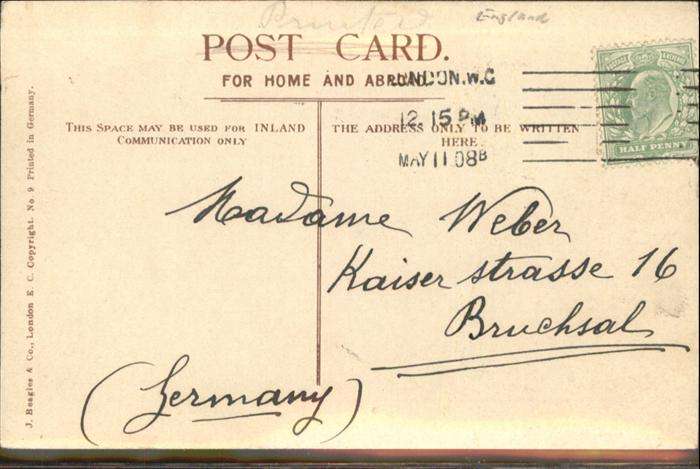 England
POST CARD.
FOR HOME AND ABROAD.
LONDON.W.C
12.15PM
MAY 11 08B
POSTAGE REVENUE
HALF PENNY
THIS SPACE MAY BE USED FOR INLAND
COMMUNICATION ONLY
THE ADDRESS ONLY TO BE WRITTEN
HERE
Madame Weber
Kaiserstrasse 16
Bruchsal
(Germany)
J. Beagles & Co., London E. C. Copyright. No. 9 Printed in Germany.